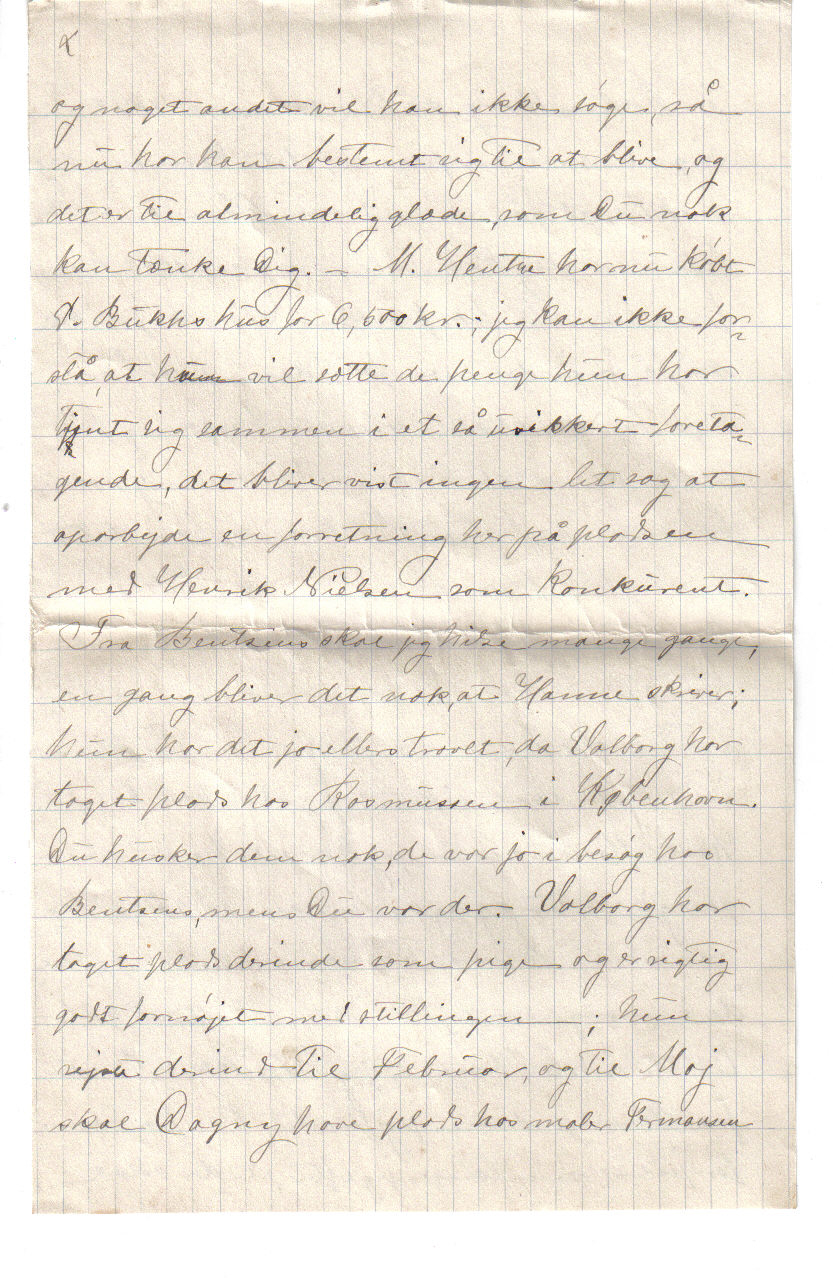 og noget andet vil han ikke søge, så
nu har han bestemt sig til at blive, og
det er til almindelig glæde, som Du nok
kan tænke Dig. – M. Hentze har nu købt
P. Bukhs hus for 6,500 kr.; jeg kan ikke for-
stå, at hun vil sætte de penge hun har
tjent sig sammen i et så usikkert foreta-
gende, det bliver vist ingen let sag at
oparbejde en forretning her på pladsen
med Henrik Nielsen som konkurent.
Fra Bentsens skal jeg hilse mange gange,
en gang bliver det nok, at Hanne skriver;
hun har det jo ellers travlt, da Valborg har
taget plads hos Rasmussen i København.
Du husker dem nok, de var jo i besøg hos
Bentsens, mens Du var der. Valborg har
taget plads derinde som pige og er rigtig
godt fornøjet med stillingen; hun
rejste derind til Februar, og til Maj
skal Dagny have plads hos maler Fermansen